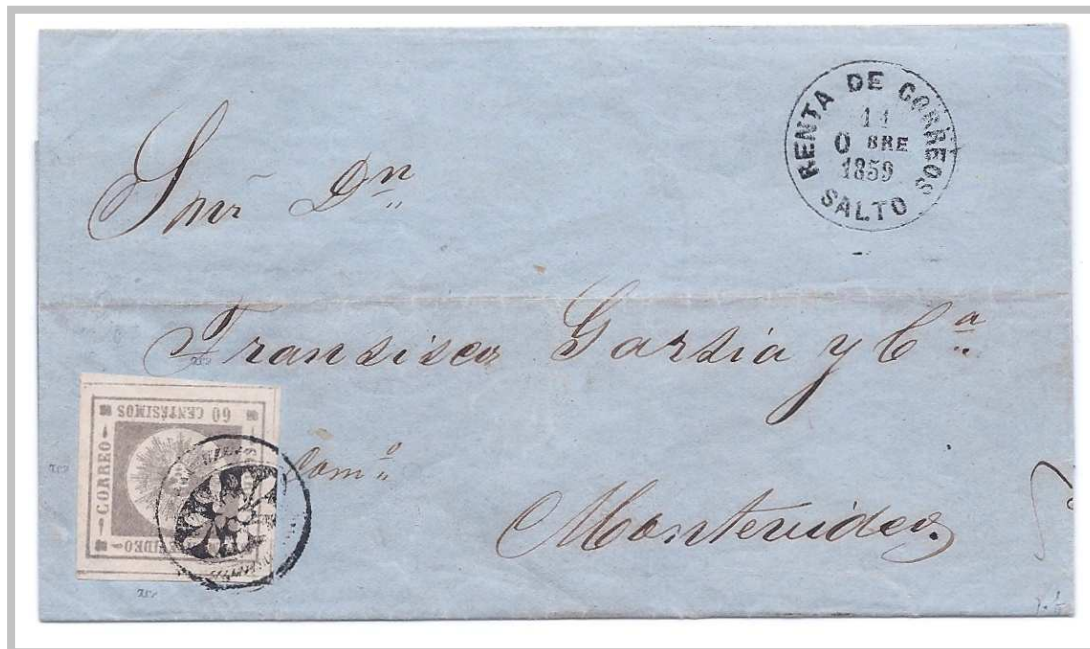 RENTA DE CORREOS
11
OBRE
1859
SALTO
Sñr Dn
Fransisco Garsia y Ca
Como
Montevideo.
60 CENTÉSIMOS
CORREO